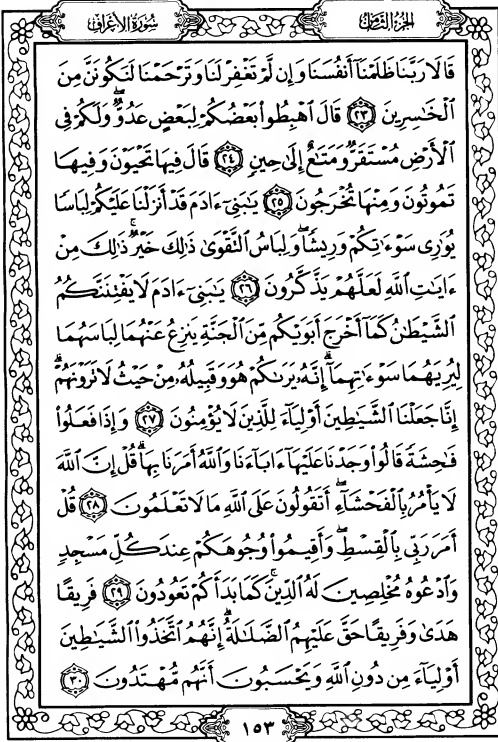 سُورَةُ الأَعْرَافِ الجُزْءُ الثَّامِنُ
قَالَا رَبَّنَا ظَلَمْنَآ أَنفُسَنَا وَإِن لَّمْ تَغْفِرْ لَنَا وَتَرْحَمْنَا لَنَكُونَنَّ مِنَ
ٱلْخَٰسِرِينَ ٢٣ قَالَ ٱهْبِطُوا۟ بَعْضُكُمْ لِبَعْضٍ عَدُوٌّ ۖ وَلَكُمْ فِى
ٱلْأَرْضِ مُسْتَقَرٌّ وَمَتَٰعٌ إِلَىٰ حِينٍ ٢٤ قَالَ فِيهَا تَحْيَوْنَ وَفِيهَا
تَمُوتُونَ وَمِنْهَا تُخْرَجُونَ ٢٥ يَٰبَنِىٓ ءَادَمَ قَدْ أَنزَلْنَا عَلَيْكُمْ لِبَاسًا
يُوَٰرِى سَوْءَٰتِكُمْ وَرِيشًا ۖ وَلِبَاسُ ٱلتَّقْوَىٰ ذَٰلِكَ خَيْرٌ ۚ ذَٰلِكَ مِنْ
ءَايَٰتِ ٱللَّهِ لَعَلَّهُمْ يَذَّكَّرُونَ ٢٦ يَٰبَنِىٓ ءَادَمَ لَا يَفْتِنَنَّكُمُ
ٱلشَّيْطَٰنُ كَمَآ أَخْرَجَ أَبَوَيْكُم مِّنَ ٱلْجَنَّةِ يَنزِعُ عَنْهُمَا لِبَاسَهُمَا
لِيُرِيَهُمَا سَوْءَٰتِهِمَآ ۗ إِنَّهُۥ يَرَىٰكُمْ هُوَ وَقَبِيلُهُۥ مِنْ حَيْثُ لَا تَرَوْنَهُمْ ۗ
إِنَّا جَعَلْنَا ٱلشَّيَٰطِينَ أَوْلِيَآءَ لِلَّذِينَ لَا يُؤْمِنُونَ ٢٧ وَإِذَا فَعَلُوا۟
فَٰحِشَةً قَالُوا۟ وَجَدْنَا عَلَيْهَآ ءَابَآءَنَا وَٱللَّهُ أَمَرَنَا بِهَا ۗ قُلْ إِنَّ ٱللَّهَ
لَا يَأْمُرُ بِٱلْفَحْشَآءِ ۖ أَتَقُولُونَ عَلَى ٱللَّهِ مَا لَا تَعْلَمُونَ ٢٨ قُلْ
أَمَرَ رَبِّى بِٱلْقِسْطِ ۖ وَأَقِيمُوا۟ وُجُوهَكُمْ عِندَ كُلِّ مَسْجِدٍ
وَٱدْعُوهُ مُخْلِصِينَ لَهُ ٱلدِّينَ ۚ كَمَا بَدَأَكُمْ تَعُودُونَ ٢٩ فَرِيقًا
هَدَىٰ وَفَرِيقًا حَقَّ عَلَيْهِمُ ٱلضَّلَٰلَةُ ۗ إِنَّهُمُ ٱتَّخَذُوا۟ ٱلشَّيَٰطِينَ
أَوْلِيَآءَ مِن دُونِ ٱللَّهِ وَيَحْسَبُونَ أَنَّهُم مُّهْتَدُونَ ٣٠
١٥٣